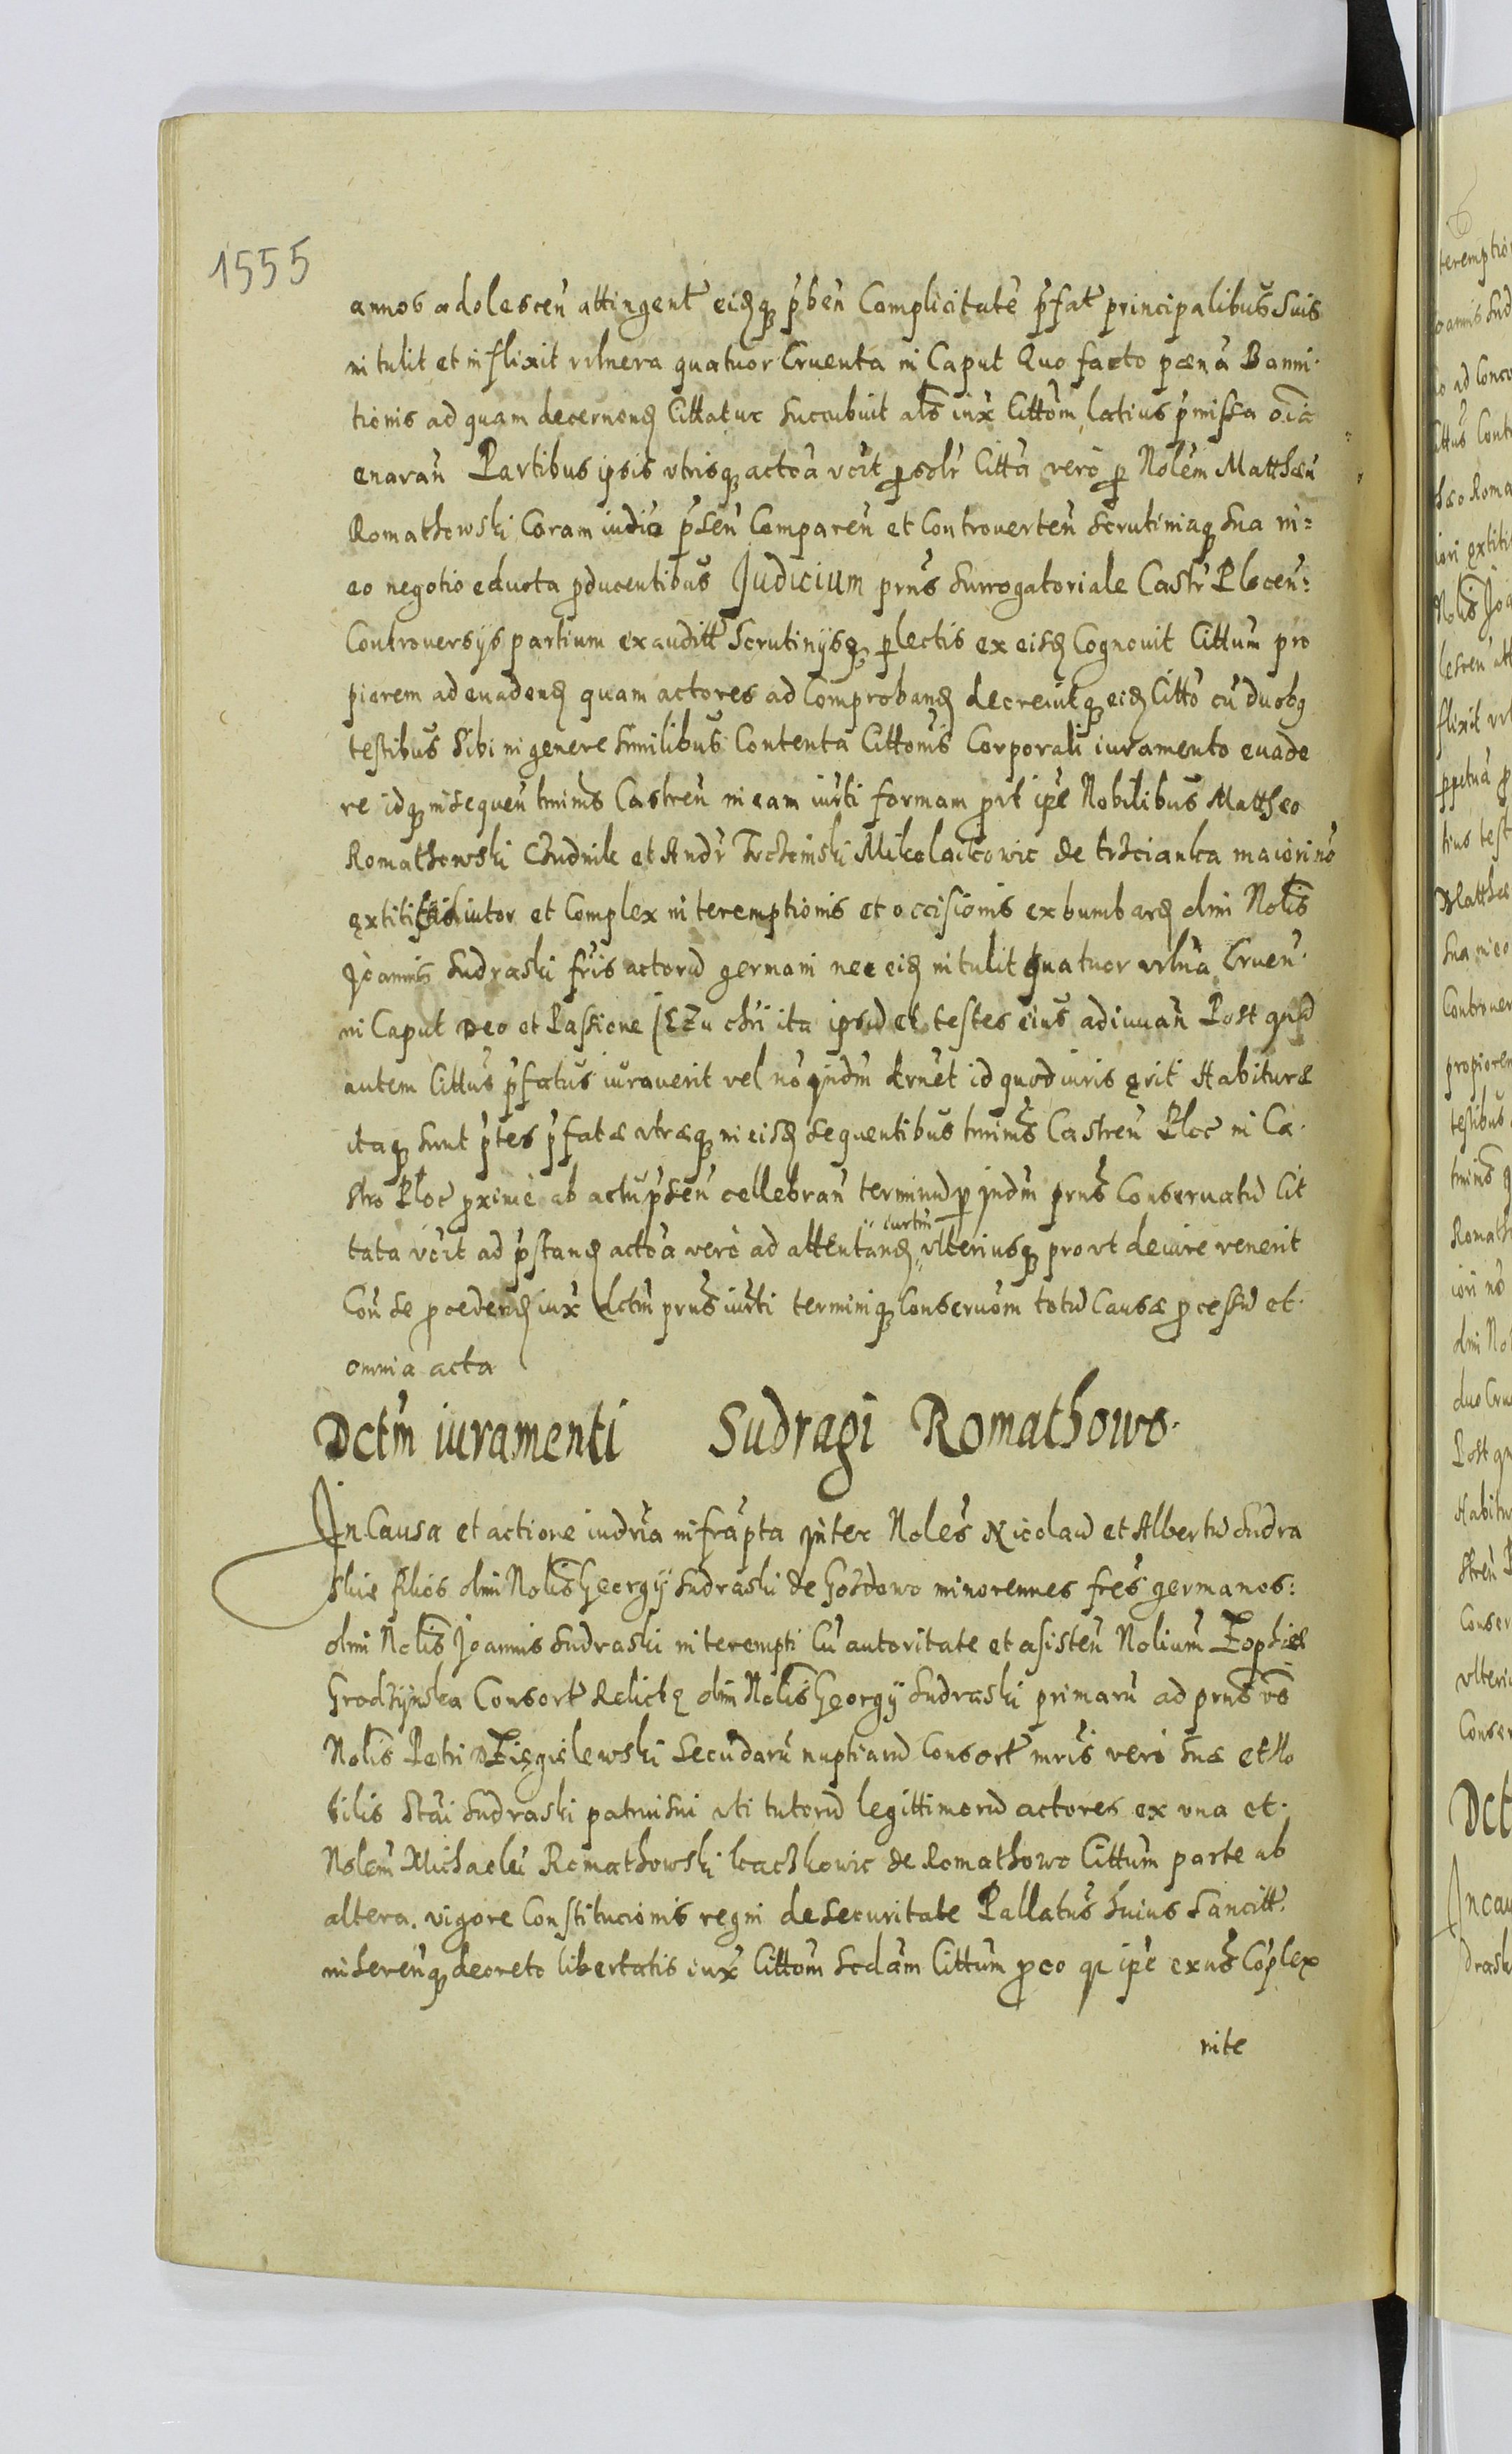 1555
annos adolescen̄ attingent̄ eidq p̄ben̄ Complicitatē p̄fat̄ principalibus Suis
intulit et inflixit vulnera quatuor Cruenta in Caput Quo facto pænā Banni
tionis ad quam decernend Cittatur Succubuit als̄ iux̄ Cittōm latius p̄missa oīa
enaran̄ Partibus ipsis vtrisq actōa vc̄t p sol̄r Cittā verò p Nol̄em Matthæū
Romathowski Coram iudiō p̄sen̄ Comparen̄ et Controverten̄ Scrutiniaq Sua in=
eo negotio educta pducentibus Judicium prn̄s Surrogatoriale Castr̄ Plocen̄:
Controversÿs partium exauditt̄ Scrutinÿsq plectis ex eisd Cognovit Cittum pro
piorem ad euadend quam actores ad Comproband decreuitq eid Cittō cū duobq
testibus Sibi in genere Similibus Contenta Cittonis Corporali iuramento euade
re idq in sequen̄ tminis Castren̄ in eam iur̄ti formam prt ip̄e Nobilibus Mattheo
Romathowski Chudnik et Andr̄ Trchcinski Mikolaikowic de trzcianka maiori nō
extitit Coadiutor et Complex interemptionis et occisionis ex bumbard olm̄i Nolis̄
Joannis Sudraski fr̄is actorū germani nec eid intulit quatuor vuln̄a Cruen̄
in Caput Deo et Passione JEZu chr̄i ita ipsū et testes eius adiuuan̄ Post quā
autem Cittus p̄fatus iurauerit vel nō Judm̄ drn̄et id quod iuris erit Habituræ
itaq sunt p̄tes p̄fatæ vtræq in eisd sequentibus tminis̄ Castren̄ Ploc in Ca
stro Ploc̄ pximè ab actu p̄sen̄ cellebran̄ terminū p Judm̄ prn̄s Conseruatū Cit
tata vc̄t ad p̄stand actōa verò ad attentand iurtm̄ vlteriusq prout de iure venerit
Con̄ se pcedend iux̄ dctm̄ prn̄s iur̄ti terminiq Conseruōm totū Causæ pcessū et
omnia acta
Dctm̄ iuramenti Sudragi Romathowo
In Causa et actione iudr̄ia infrap̄ta Inter Noles̄ Nicolaū et Albertū Sudra
skie filios olm̄i Nolis̄ Georgÿ Sudraski de Gozdowo minorennes fr̄es germanos:
olm̄i Nolis̄ Joannis Sudraski interempti Cū autoritate et asisten̄ Nolium̄ Zophiæ
Grodzÿnska Consort̄ Relictę olm̄ Nolis̄ Georgÿ Sudraski primarū ad prn̄s vs̄
Nolis̄ Petri Dzięgielewski Secūdarū nuptiarū Consort̄ mr̄is verò Suæ et No
bilis Stāi Sudraski patrui sui vti tutorū legittimorū actores ex vna et
Nolem̄ Michaelē Romathowski kaczkowic de Romathowo Cittum parte ab
altera vigore Constitucionis regni de Securitate Pallatus huius Sancitt̄
inseren̄q decreto libertatis iux̄ Cittōm Scdam̄ Cittum p eo qz ip̄e exns̄ Cōplex
nite